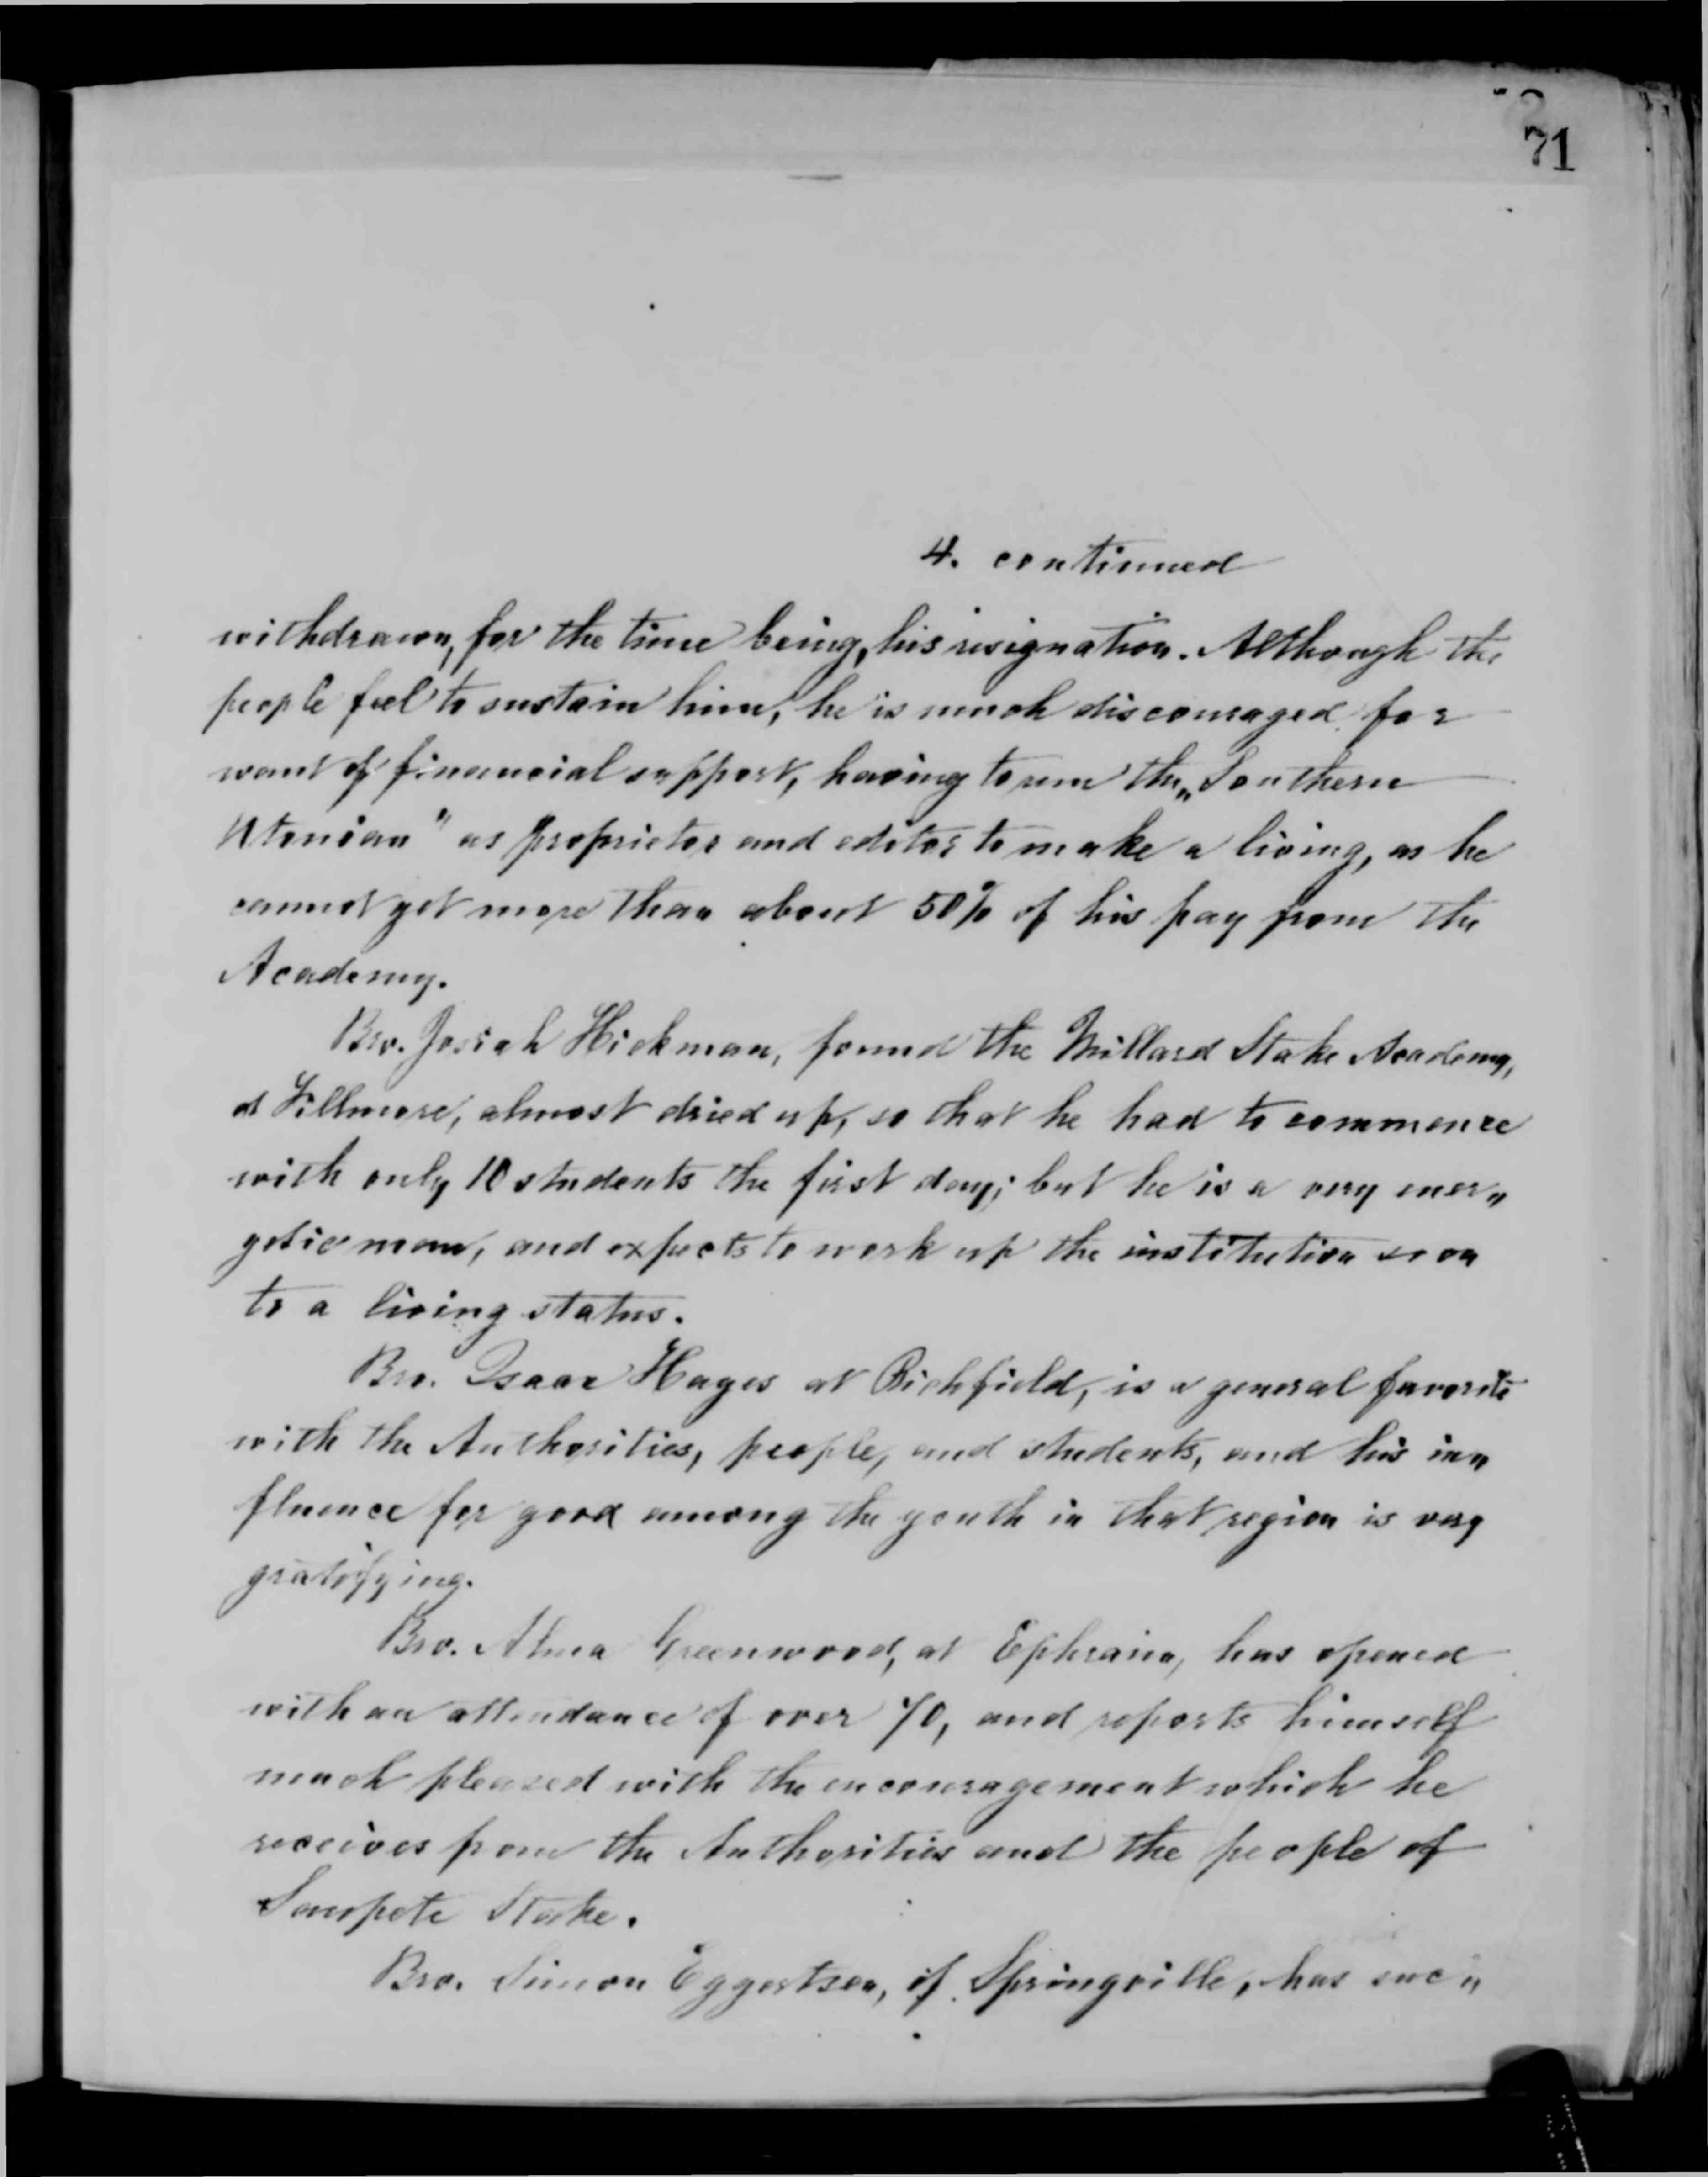 71
4. continued
withdrawn, for the time being, his resignation. Although the
people feel to sustain him, he is much discouraged for
want of financial support, having to run the „Southern
Utonian" as proprietor and editor to make a living, as he
cannot get more than about 50% of his pay from the
Academy.
Bro. Josiah Hickman, found the Millard Stake Academy,
at Fillmore, almost dried up, so that he had to commence
with only 10 students the first day; but he is a very ener„
getic man, and expects to work up the institution soon
to a living status.
Bro. Isaac Hayes at Richfield, is a general favorite
with the Authorities, people, and students, and his in„
fluence for good among the youth in that region is very
gratifying.
Bro. Alma Greenwood, at Ephraim, has opened
with an attendance of over 70, and reports himself
much pleased with the encouragement which he
receives from the Authorities and the people of
Sanpete Stake.
Bro. Simon Eggertsen, of Springville, has suc„